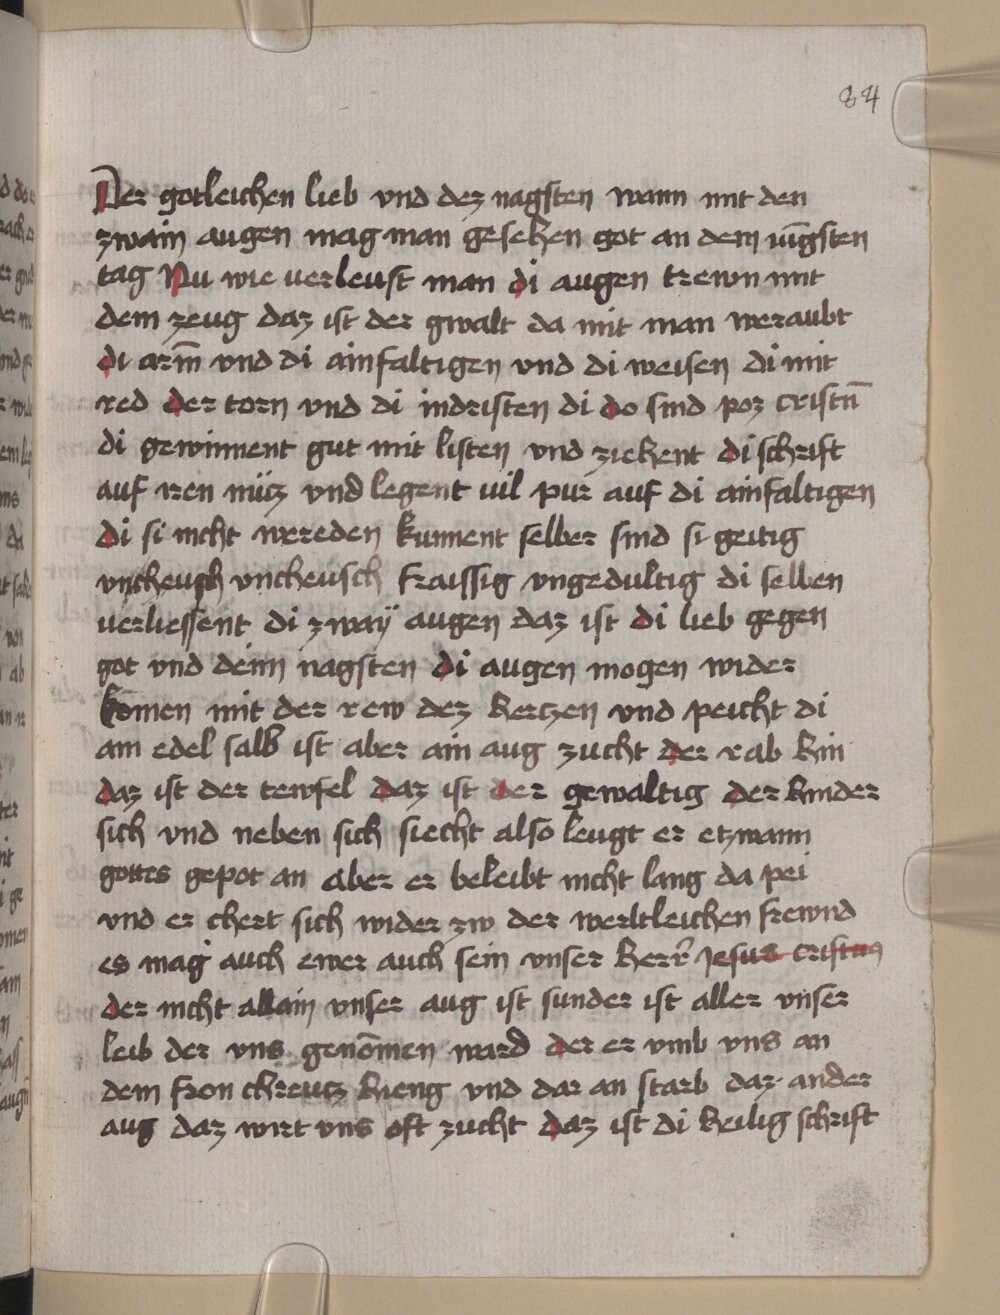 84
Der gotleichen lieb vnd dez nagsten wann mit den
zwain augen mag man gesehen got an dem iu̅gsten
tag Nu wie verleust man di augen trewn mit
dem zeug daz ist der gwalt da mit man weraubt
di arm̅ vnd di ainfaltigen vnd di weisen di mit
red der torn vnd di indristen di do sind poz cristn̅
di gewinnent gut mit listen vnd ziehent di schrift
auf iren nutz vnd legent vil pur auf di ainfaltigen
di si nicht wereden kunnent selber sind si geitig
vncheusch fraissig vngedultig di selben
verliessent di zway augen daz ist di lieb gegen
got vnd dem nagsten di augen mogen wider
ko̅men mit der rew dez hertzen vnd peicht di
ain edel salb ist aber ain aug zucht der rab hin
daz ist der tewfel daz ist der gewaltig der hinder
sich vnd neben sich siecht also leugt er etzwann
gottes gepot an aber er beleibt nicht lang da pei
vnd er chert sich wider zw der werltleichen frewnd
es mag auch ewer auch sein vnser herr Jesus cristus
der nicht allain vnser aug ist sunder ist aller vnser
leib der vns geno̅men ward der er vmb vns an
dem fron chreutz hieng vnd dar an starb daz ander
aug daz wirt vns oft zucht daz ist di heilig schrift